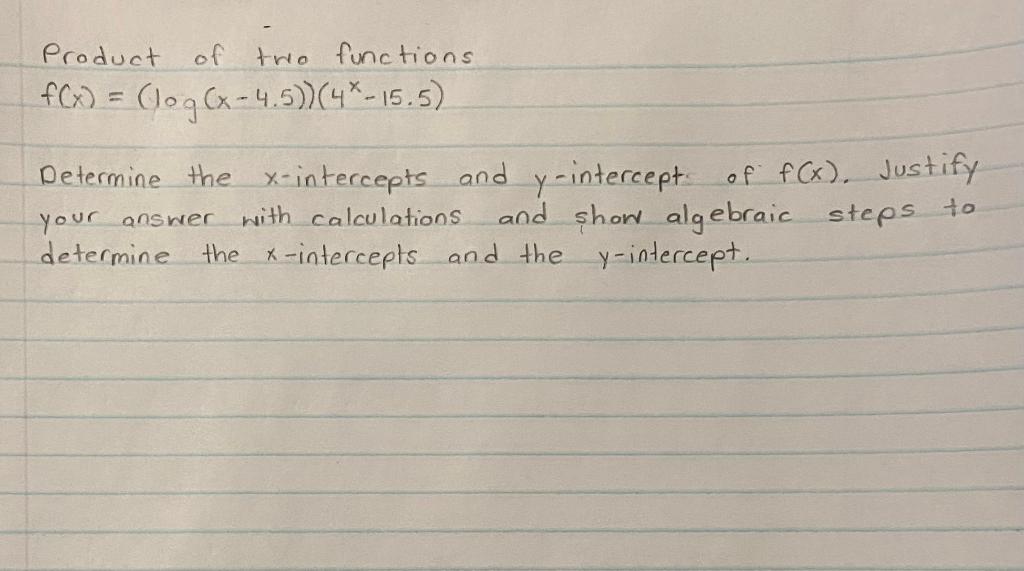 Product of two functions
f(x) = (log(x-4.5))(4ˣ-15.5)
Determine the x-intercepts and y-intercept of f(x). Justify
your answer with calculations and show algebraic steps to
determine the x-intercepts and the y-intercept.